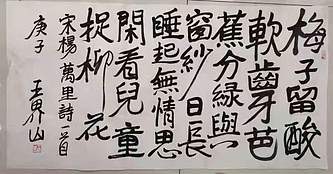 梅子留酸
軟齒牙芭
蕉分綠與
窗紗日長
睡起無情思
閑看兒童
捉柳花
宋楊萬里詩一首
庚子 王界山